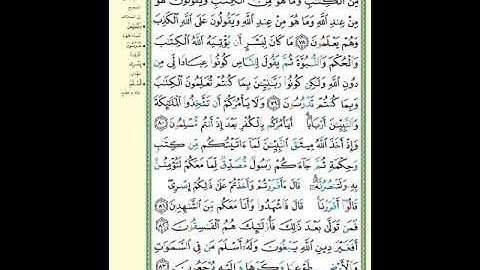 مِنَ الْكِتَٰبِ وَمَا هُوَ مِنَ الْكِتَٰبِ وَيَقُولُونَ هُوَ
مِنْ عِندِ اللَّهِ وَمَا هُوَ مِنْ عِندِ اللَّهِ وَيَقُولُونَ عَلَى اللَّهِ الْكَذِبَ
وَهُمْ يَعْلَمُونَ ٧٨ مَا كَانَ لِبَشَرٍ أَن يُؤْتِيَهُ اللَّهُ الْكِتَٰبَ
وَالْحُكْمَ وَالنُّبُوَّةَ ثُمَّ يَقُولَ لِلنَّاسِ كُونُوا عِبَادًا لِّي مِن
دُونِ اللَّهِ وَلَٰكِن كُونُوا رَبَّٰنِيِّينَ بِمَا كُنتُمْ تُعَلِّمُونَ الْكِتَٰبَ
وَبِمَا كُنتُمْ تَدْرُسُونَ ٧٩ وَلَا يَأْمُرَكُمْ أَن تَتَّخِذُوا الْمَلَٰئِكَةَ
وَالنَّبِيِّينَ أَرْبَابًا أَيَأْمُرُكُم بِالْكُفْرِ بَعْدَ إِذْ أَنتُم مُّسْلِمُونَ ٨٠
وَإِذْ أَخَذَ اللَّهُ مِيثَٰقَ النَّبِيِّينَ لَمَا ءَاتَيْتُكُم مِّن كِتَٰبٍ
وَحِكْمَةٍ ثُمَّ جَاءَكُمْ رَسُولٌ مُّصَدِّقٌ لِّمَا مَعَكُمْ لَتُؤْمِنُنَّ
بِهِ وَلَتَنصُرُنَّهُ قَالَ ءَأَقْرَرْتُمْ وَأَخَذْتُمْ عَلَىٰ ذَٰلِكُمْ إِصْرِي
قَالُوا أَقْرَرْنَا قَالَ فَاشْهَدُوا وَأَنَا مَعَكُم مِّنَ الشَّٰهِدِينَ ٨١
فَمَن تَوَلَّىٰ بَعْدَ ذَٰلِكَ فَأُولَٰئِكَ هُمُ الْفَٰسِقُونَ ٨٢
أَفَغَيْرَ دِينِ اللَّهِ يَبْغُونَ وَلَهُ أَسْلَمَ مَن فِي السَّمَٰوَٰتِ
وَالْأَرْضِ طَوْعًا وَكَرْهًا وَإِلَيْهِ يُرْجَعُونَ ٨٣